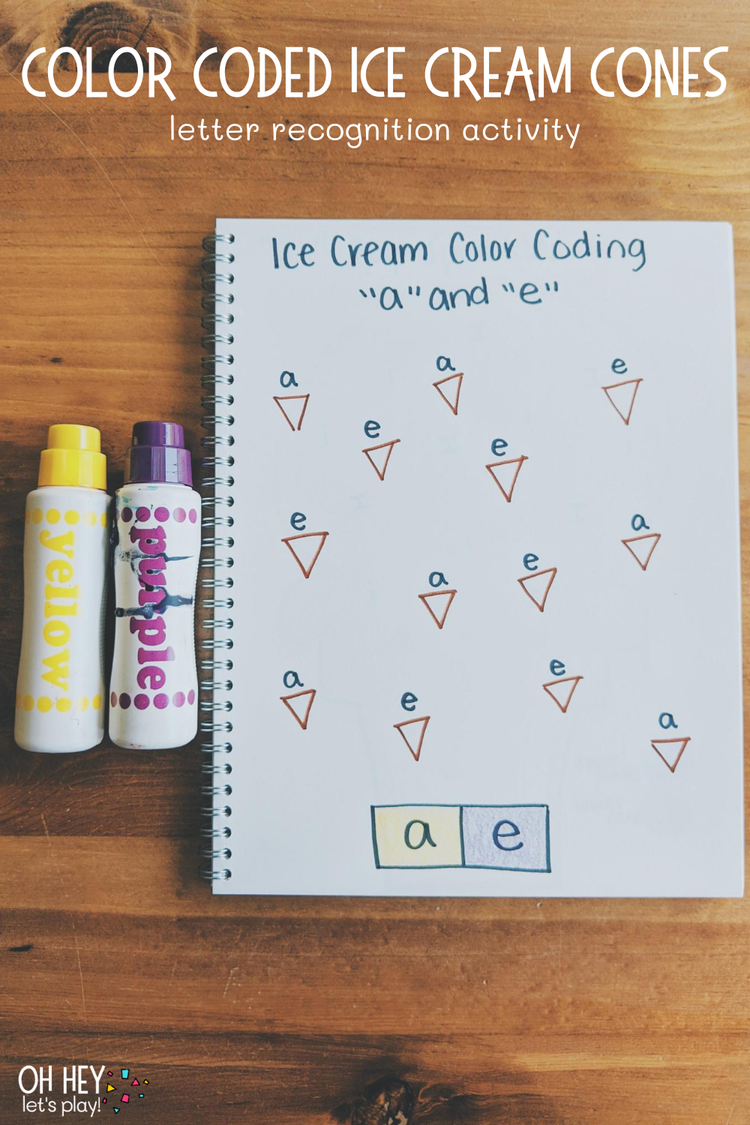 COLOR CODED ICE CREAM CONES
letter recognition activity
Ice Cream Color Coding
"a" and "e"
a a e
e e
e a
a e
a e
e a
a e
yellow
purple
OH HEY
let's play!